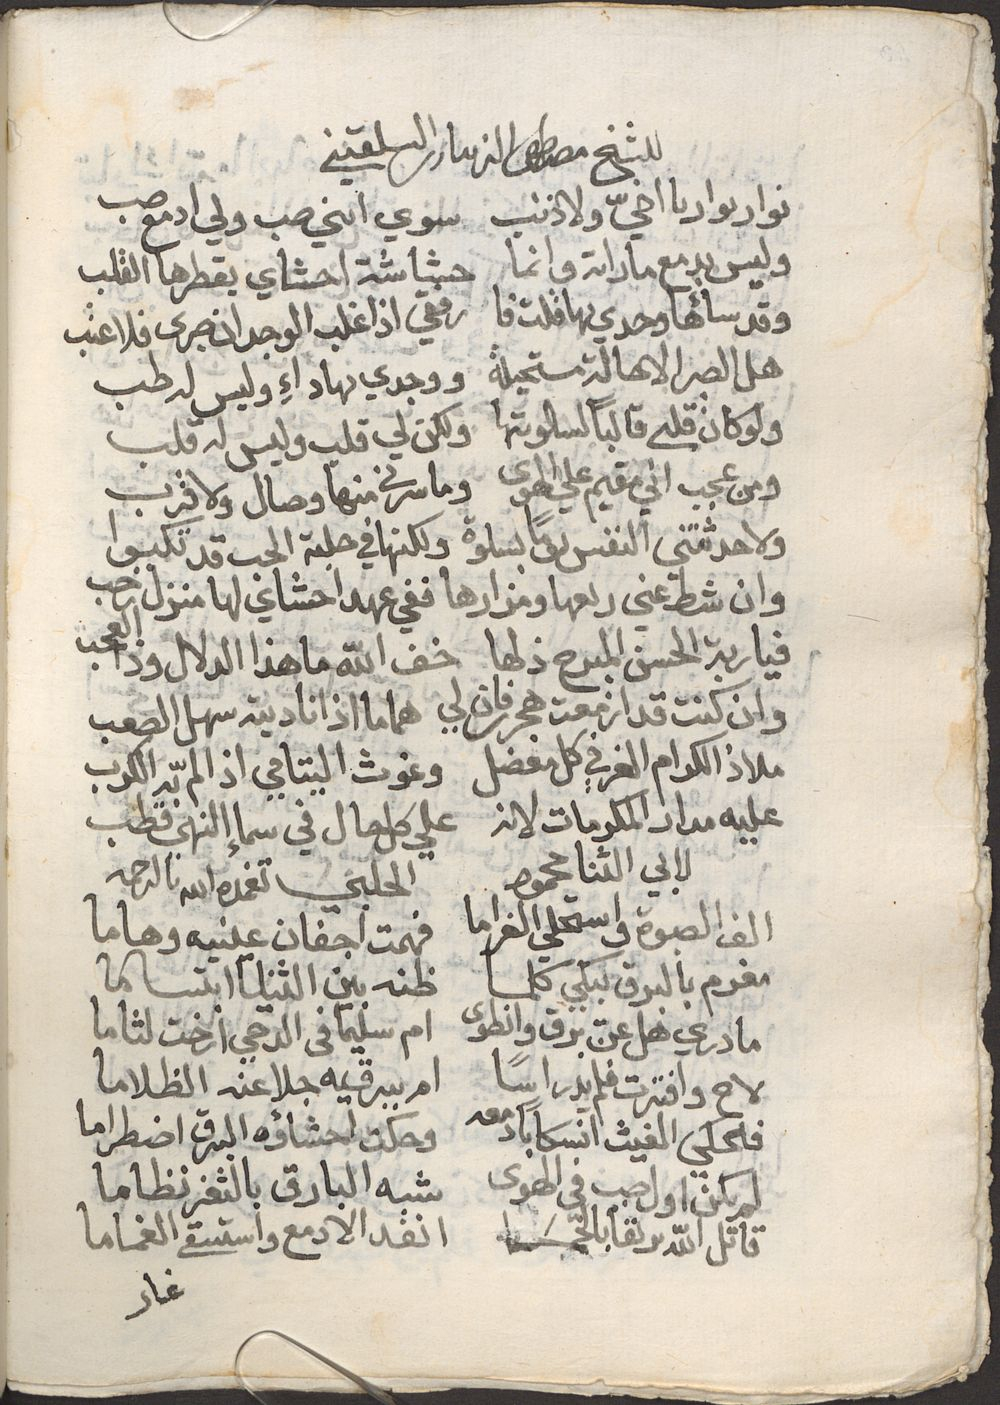 للشيخ مصطفى السلقيني
نوار نوار يا اخيّ ولا ذنب سوي انني صب ولي ادمع صب
وليس بدمع ما راته وانما حشاشة احشاي يقطرها القلب
وقد سائها وجدي بها قلت اذا غلب الوجد ان صرى فلا عتب
هل الصبر الا حالة مستحيلة ووجدي بها داءٍ وليس له طب
ولو كان قلبي قالباً لسلوتها ولكن لي قلب وليس له قلب
ومن عجب اني مقيم علي الهوى وما سرني منها وصال ولا قرب
ولا حدثتني النفس يوماً بسلوة ولكنها في حلبة الحب قد تكبوا
وان شط عني ربعها ومزارها ففي عهد احشاي لها منزل رحب
فيا ربة الحسن المبدح ذلها خف الله ما هذا الدلال وذا العجب
وان كنت قد ازمعت هجري فان لي هماما اذا ناديته سهل الصعب
ملاذ الكرام الغر في كل مفضل وغوث اليتامي اذ الم به الكرب
عليه مدار المكرمات لانه علي كل حال في سماءِ النهى قطب
لابي الثنا محمود الحلبي تغمده الله بالرحمه
الف الصبوة واستحلي الغراما فهمت اجفان عينيه وهاما
مغرم بالبرق يبكي كلما ظنه بين الثنايا ابتساما
ما درى هل عن برق وانطوى ام سليما في الدجي ارخت لثاما
لاح وافترت فلم يدر اسًا ام ببرقيه جلا عنه الظلاما
فحكي الغيث انسكاباً دمعه وحكت احشاؤه البرق اضطراما
لم يكن اول صب في الهوى شبه البارق بالثغر نظاما
قاتل الله برقا انفد الادمع واستسقي الغماما
غار